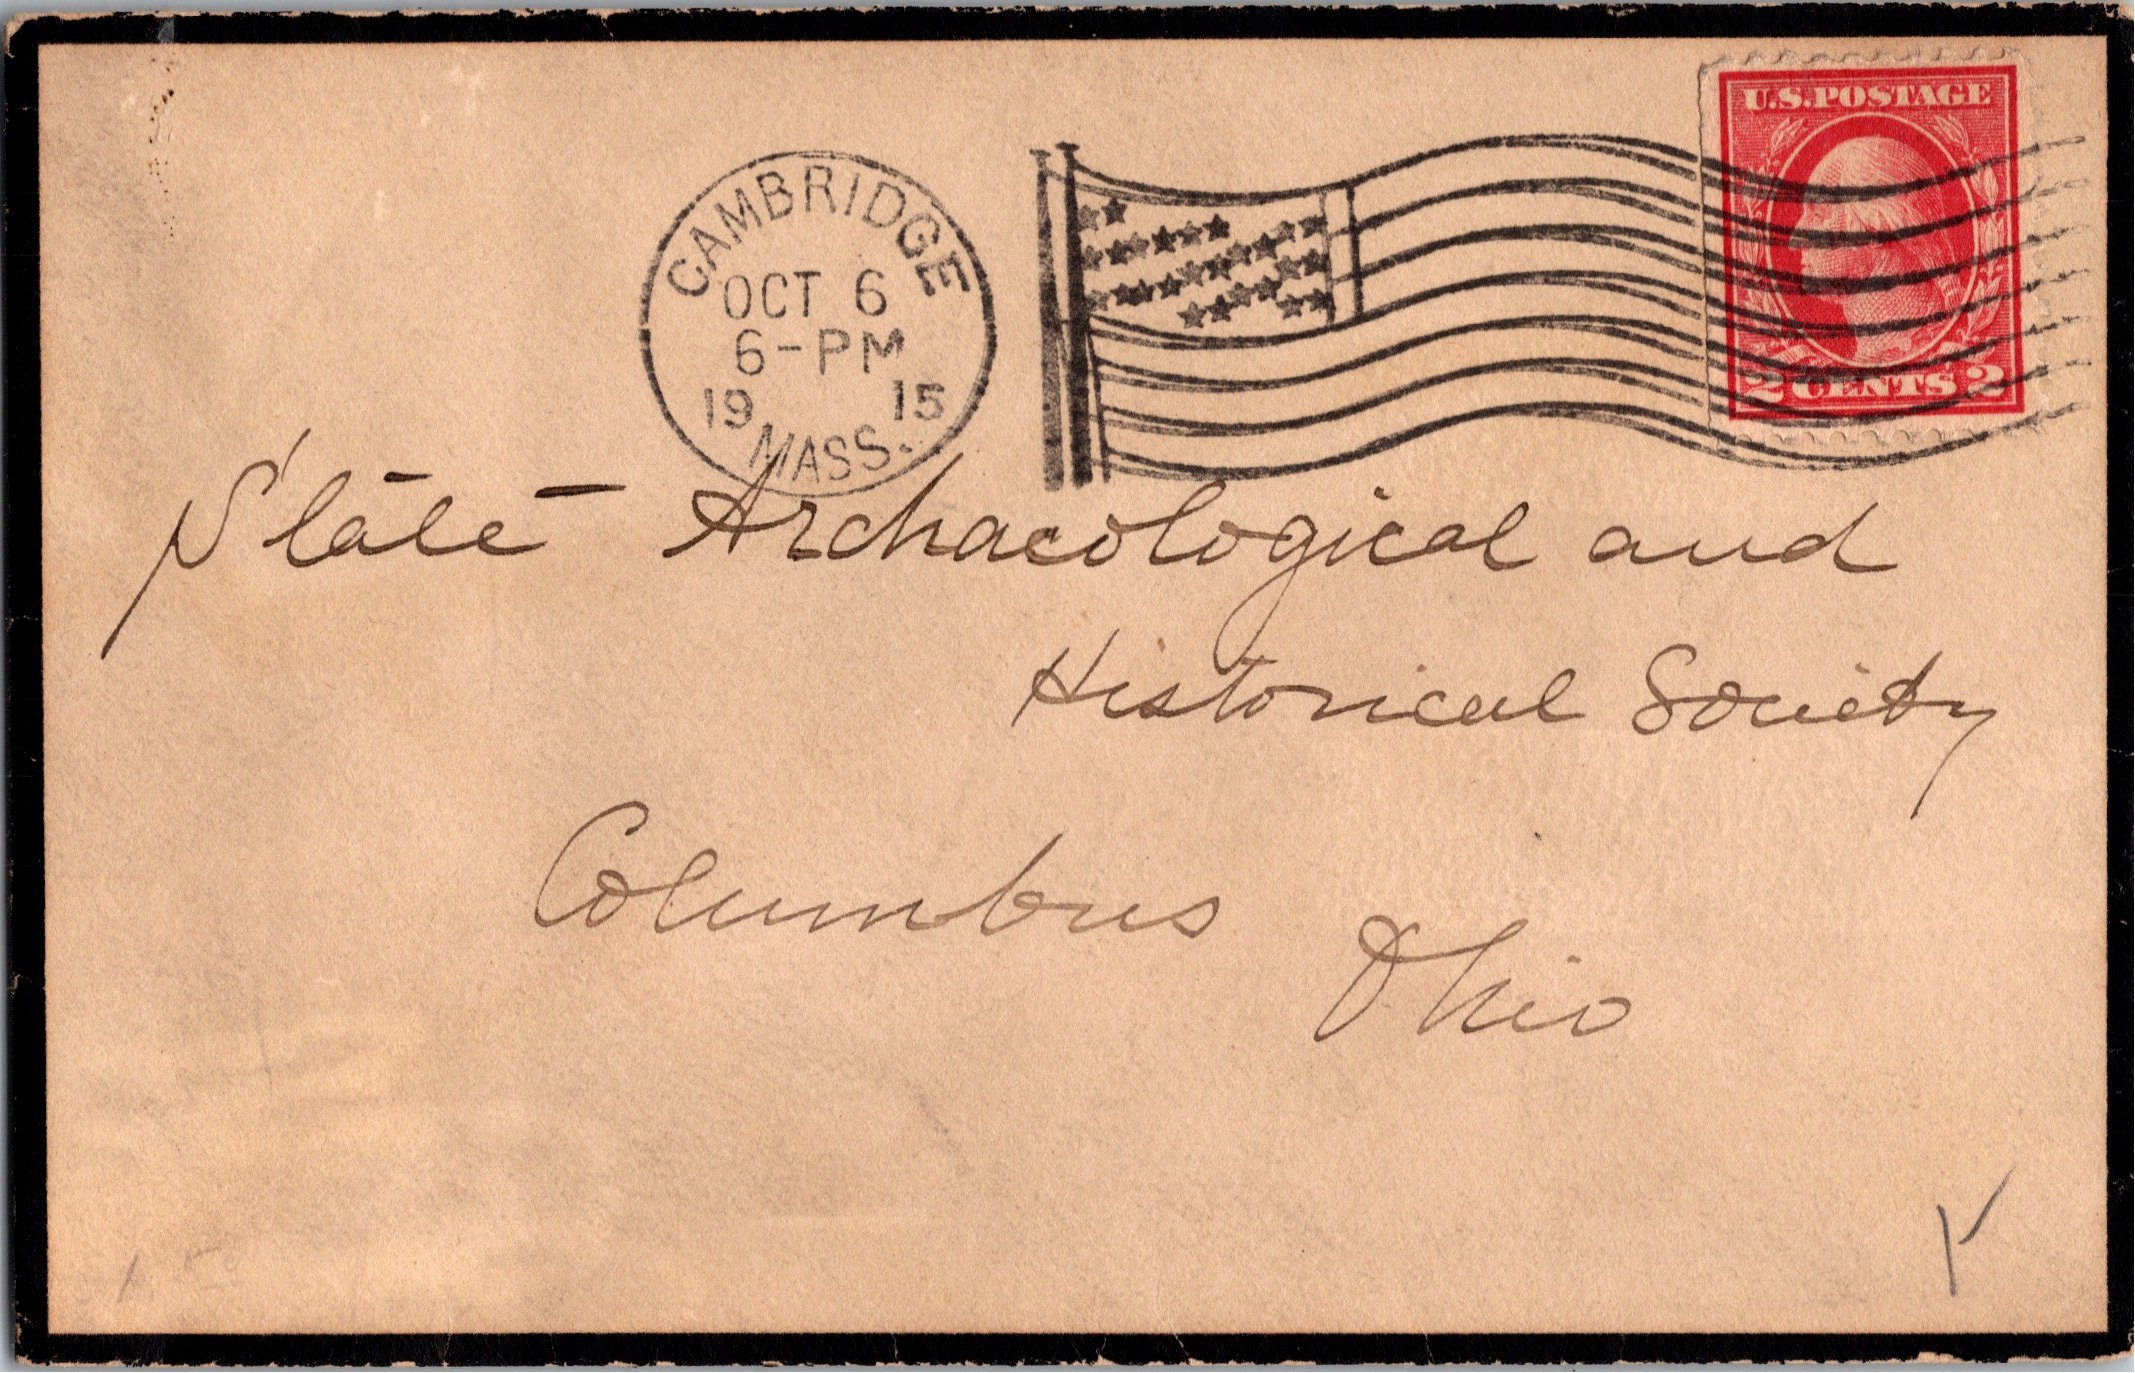 U.S. POSTAGE
CAMBRIDGE
OCT 6
6-PM
19 15
MASS.
2 CENTS 2
State Archaeological and
Historical Society
Columbus
Ohio